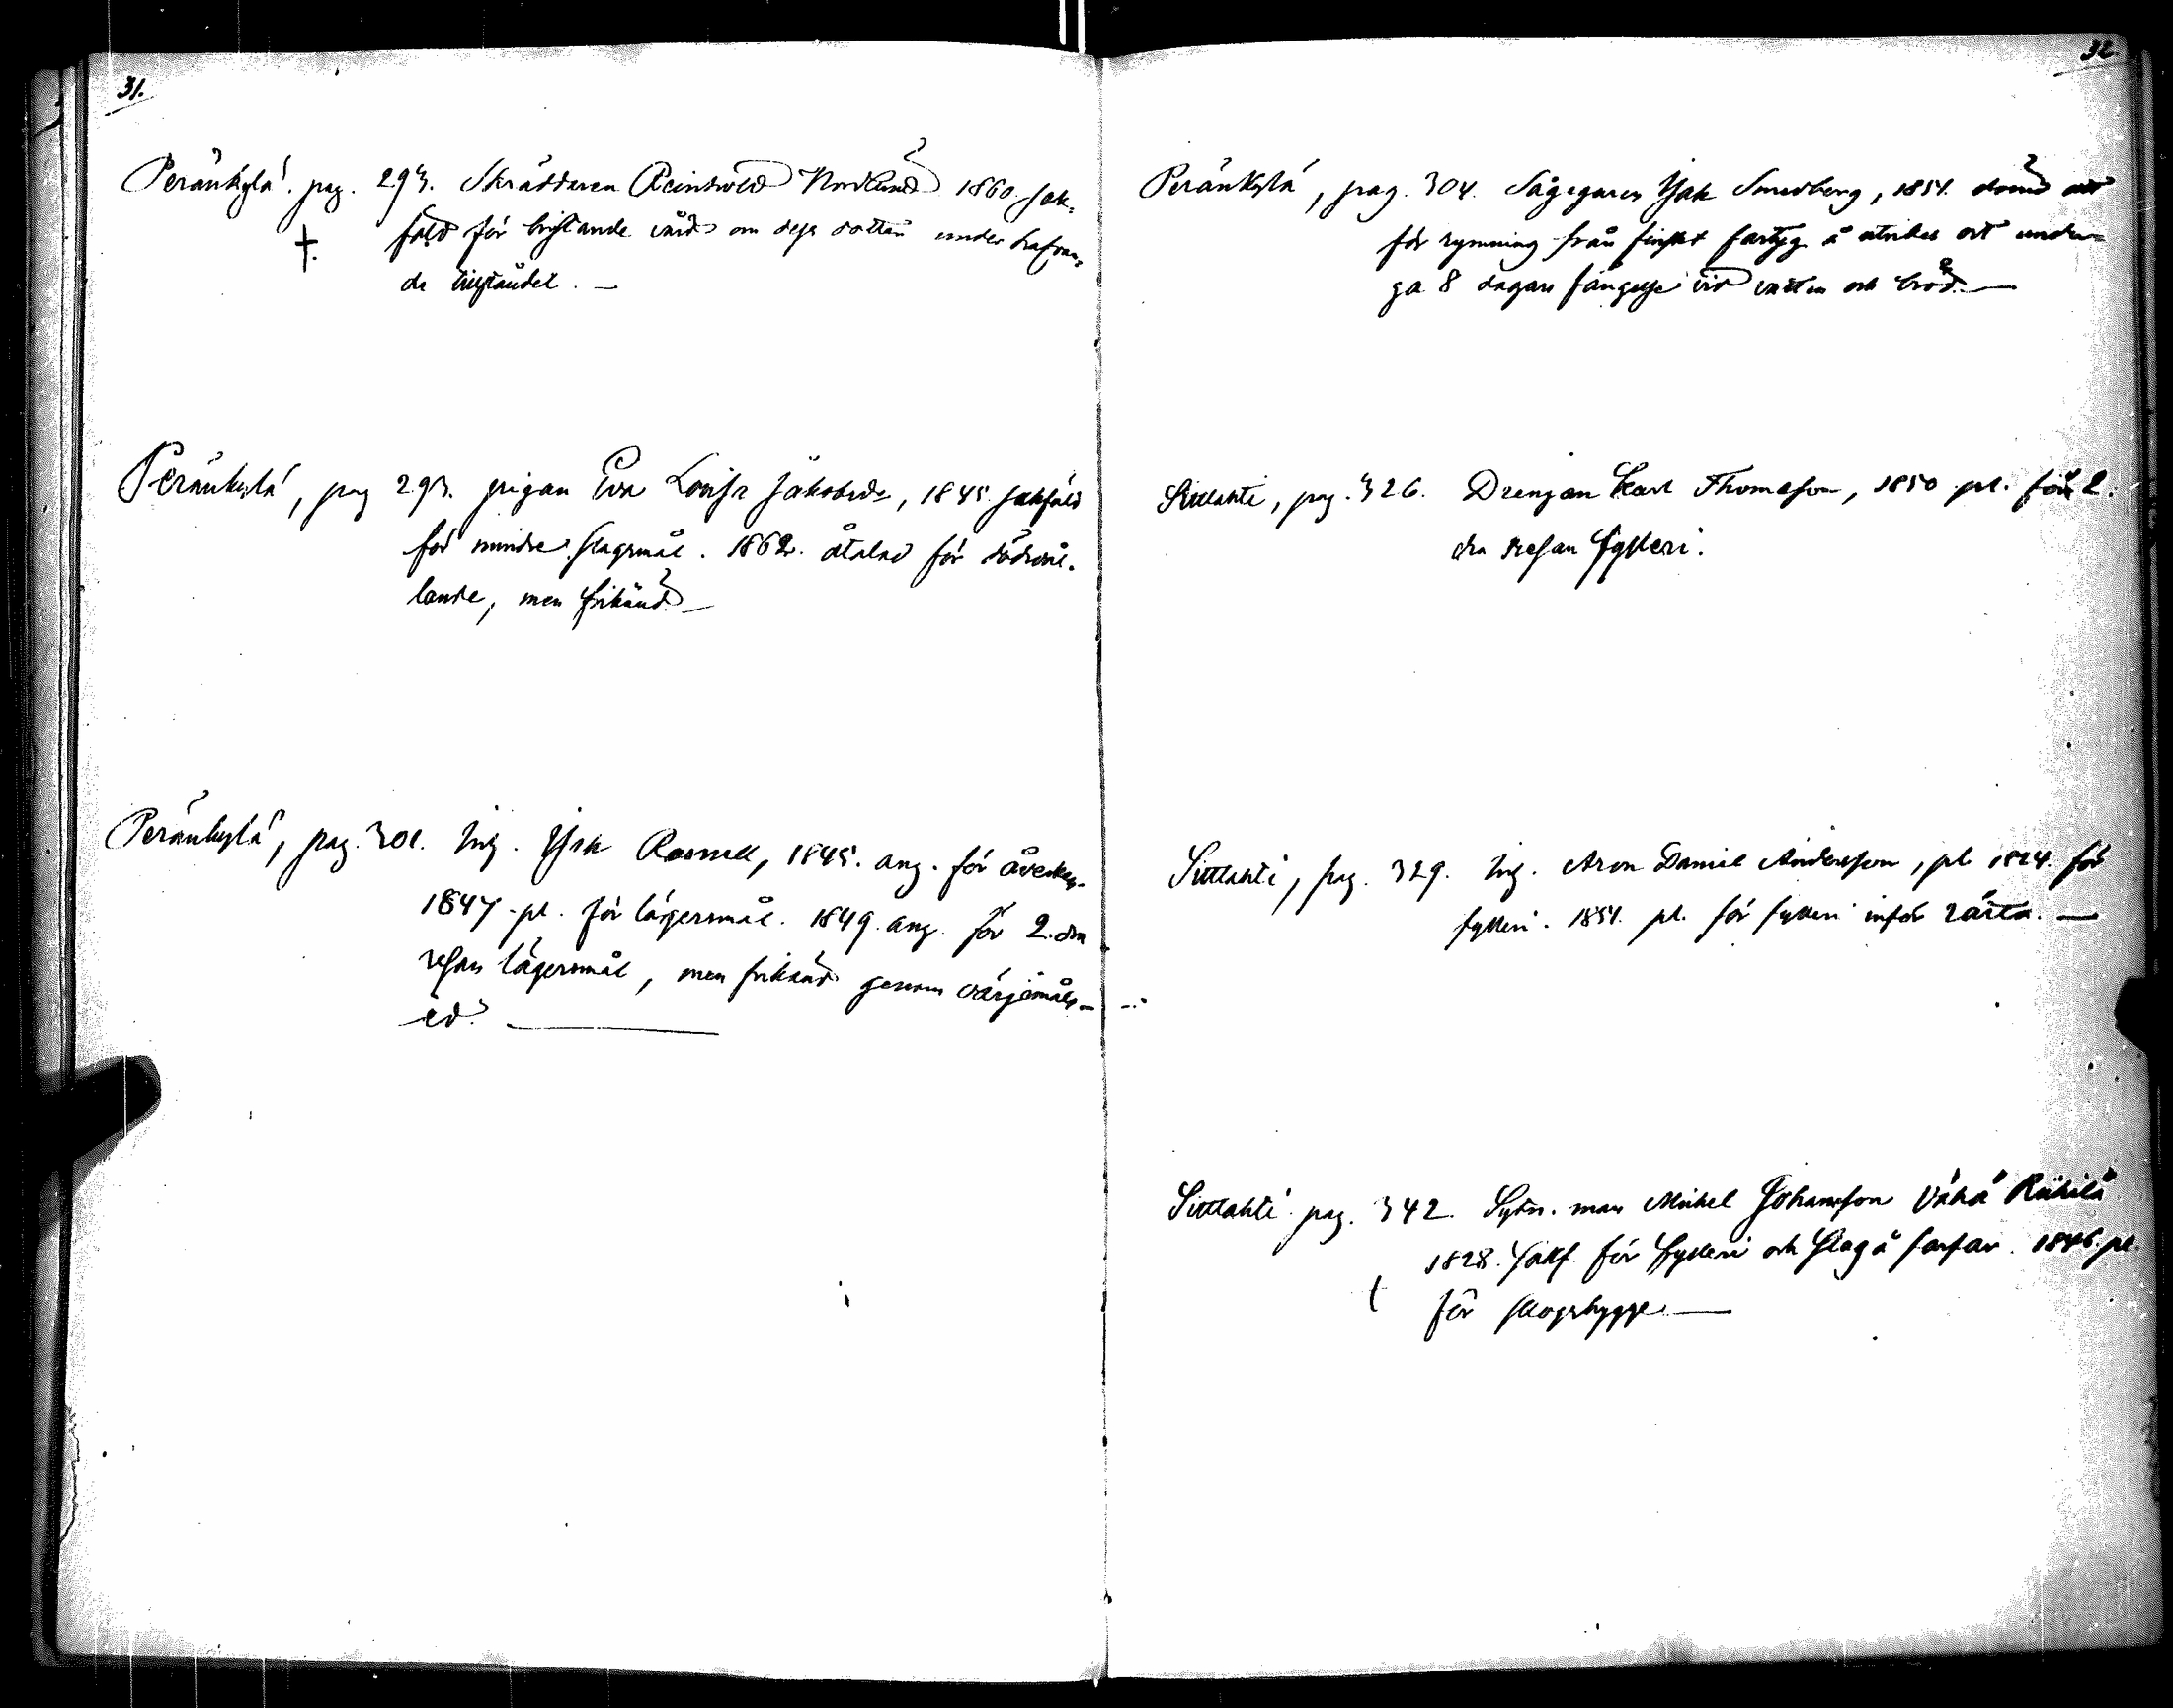 31.
Peränkylä. pag. 293. Skräddaren Reinhold Nordlund 1860. sak-
fäld för bristande vård om dess dotter under hafvan-
†. de tillståndet. —
Peränkylä, pag 293. pigan Eva Lovisa Jakobsdr, 1845 sakfäld
för mindre slagsmål. 1862. åtalad för dödsvål-
lande, men frikänd. —
Peränkylä, pag. 301. Inh. Isak Rosnell, 1845. ang. för åverkan.
1847. pl. för lägersmål. 1849. ang. för 2. dra
resan lägersmål, men frikänd genom värjemåls-
ed. —
32.
Peränkylä, pag. 304. Sågegaren Isak Smedberg, 1854. dömd att
för rymning från finskt fartyg å utrikes ort under-
gå 8 dagars fängelse vid vatten och bröd. —
Sittlahti, pag. 326. Drengen Karl Thomasson, 1850 pl. för 2.
dra resan fylleri.
Sittlahti, pag. 329. Inh. Aron Daniel Andersson, pl. 1824. för
fylleri. 1854. pl. för fylleri inför rätta. —
Sittlahti pag. 342. Sytn. man Michel Johansson Vähä Riihilä
1828. sakf. för fylleri och slag å farfar. 1846. pl.
† för skogshygge. —